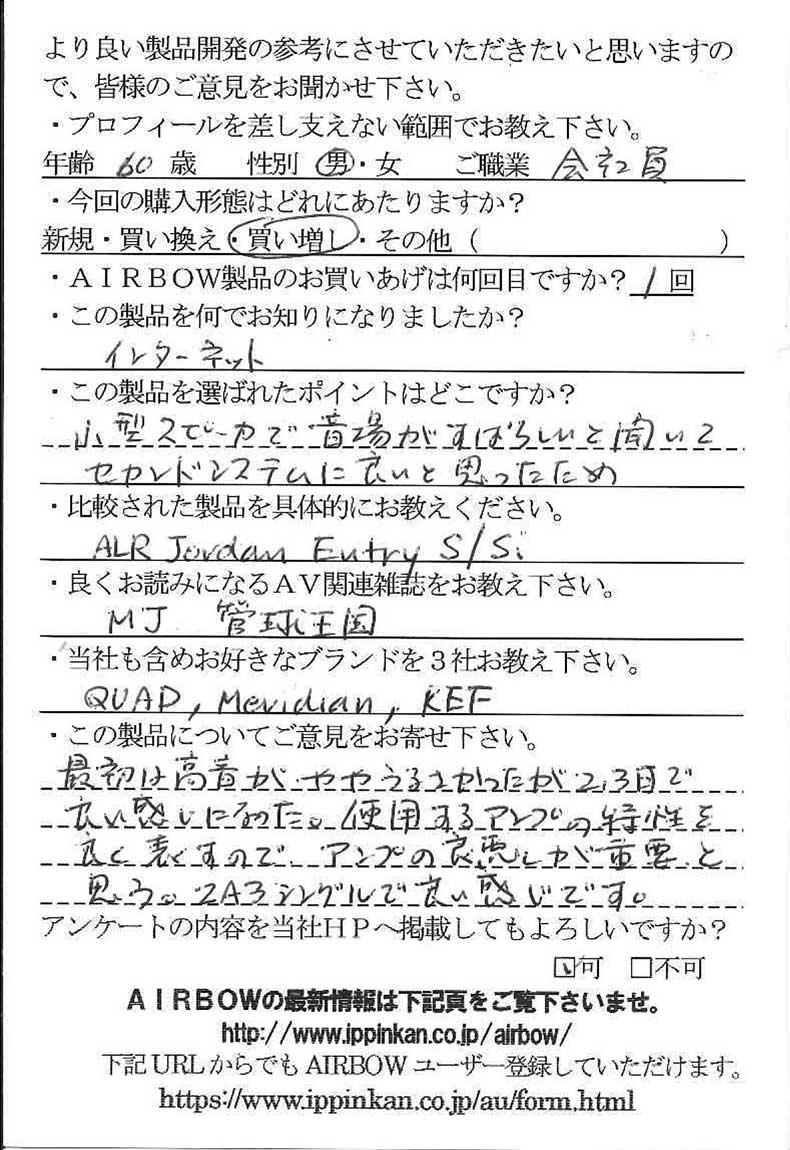 より良い製品開発の参考にさせていただきたいと思いますの
で、皆様のご意見をお聞かせ下さい。
・プロフィールを差し支えない範囲でお教え下さい。
年齢 60 歳 性別 男・女 ご職業 会社員
・今回の購入形態はどれにあたりますか？
新規・買い換え・買い増し・その他（ ）
・ＡＩＲＢＯＷ製品のお買いあげは何回目ですか？ 1 回
・この製品を何でお知りになりましたか？
インターネット
・この製品を選ばれたポイントはどこですか？
小型スピーカで音場がすばらしいと聞いて
セカンドシステムに良いと思ったため
・比較された製品を具体的にお教えください。
ALR Jordan Entry S/Si
・良くお読みになるＡＶ関連雑誌をお教え下さい。
MJ 管球王国
・当社も含めお好きなブランドを３社お教え下さい。
QUAD, Meridian, KEF
・この製品についてご意見をお寄せ下さい。
最初は高音がややうるさかったが2,3日で
良い感じになった。使用するアンプの特性を
良く表すので、アンプの良悪しが重要と
思う。2A3シングルで良い感じです。
アンケートの内容を当社ＨＰへ掲載してもよろしいですか？
☑可 □不可
ＡＩＲＢＯＷの最新情報は下記頁をご覧下さいませ。
http://www.ippinkan.co.jp/airbow/
下記 URL からでも AIRBOW ユーザー登録していただけます。
https://www.ippinkan.co.jp/au/form.html